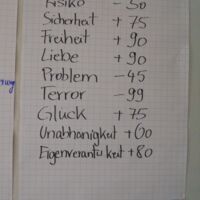 Risiko - 50
Sicherheit + 75
Freiheit + 90
Liebe + 90
Problem - 45
Terror - 99
Glück + 75
Unabhänigkeit + 60
Eigenverantw keit + 80